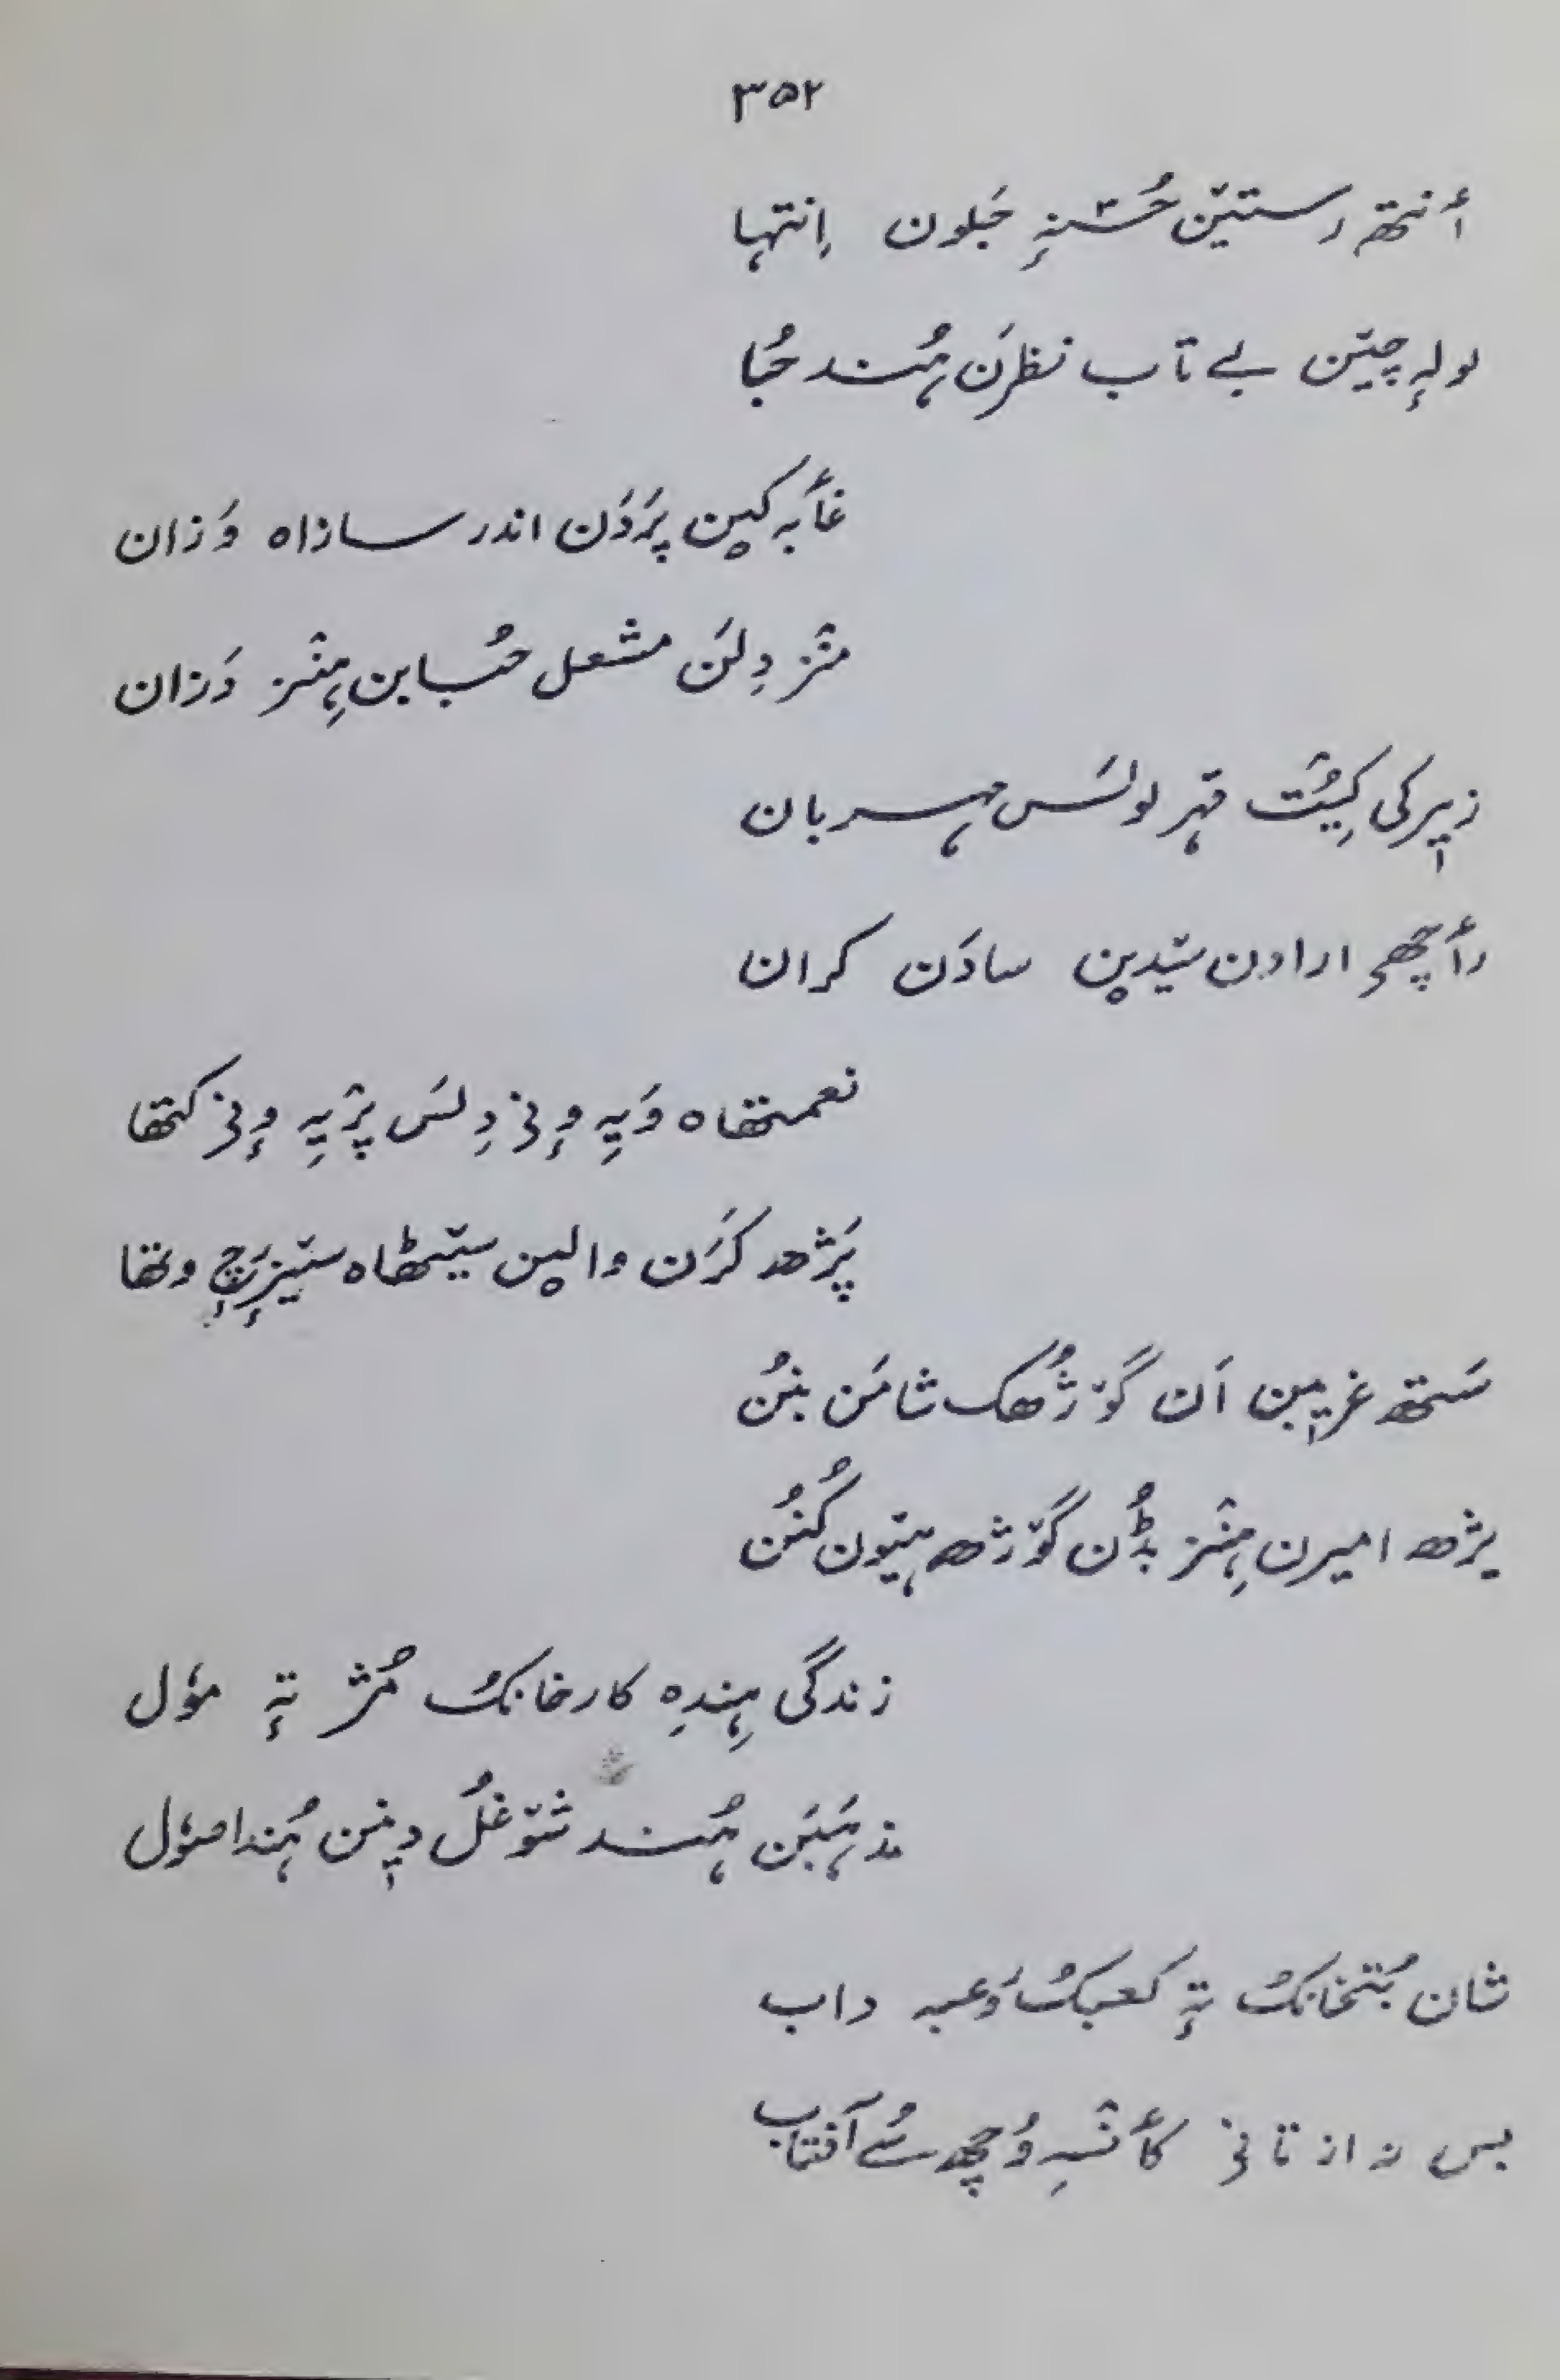 ۳۵۲
أنتھ رستین حُسنہٕ جَلون اِنتہا
لولہٕ چین بے تاب نظرَن ہُند حُبا
غأبہ کین پرَدَن اندر سازاہ وَزان
منٛز دِلَن مشعل حُبابن ہِنٛز دَزان
کِیُت قہر لولَس مہربان
رأچھ ارادن سادَن کران
نعمتھاہ وَیہِ وٕنۍ دِلَس پرٛیہِ وٕنۍ کتھا
پَژھ کَرَن والین سیٚٹھاہ سیٚزرٕچ وتھا
سَتھ غریبن اَن گوٚژھُک شامَن بنُن
یژھ امیرن ہِنٛز بڈُن گوٚژھ ہیٚون کُنُن
زندگی ہِندِہ کارخانکُ مُژ تہٕ موٗل
مذہبَن ہُند شوٚغُل دیٖنن ہُند اصوٗل
شان بُتخانکُ تہٕ کعبکُ رَعبہ داب
بس نہ از تانۍ کأنٛسہِ وُچھ سُے آفتاب